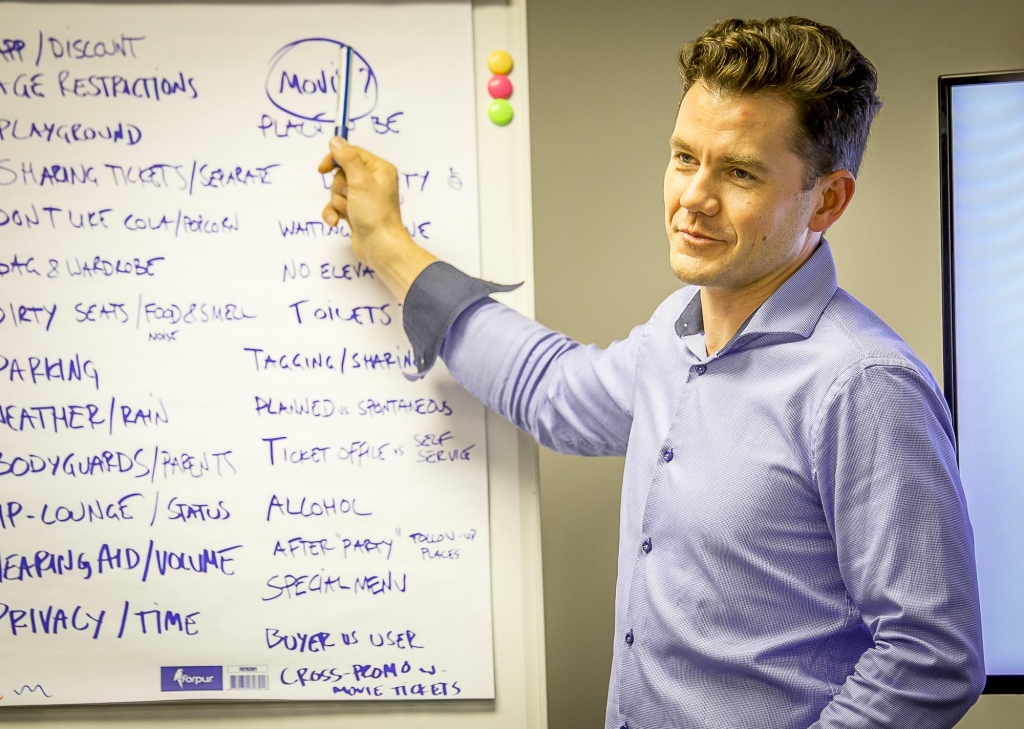 APP / DISCOUNT
AGE RESTRICTIONS
PLAYGROUND
SHARING TICKETS / SEPARATE
DONT LIKE COLA / POPCORN
BAG & WARDROBE
DIRTY SEATS / FOOD & SMELL
NOISE
PARKING
WEATHER / RAIN
BODYGUARDS / PARENTS
VIP-LOUNGE / STATUS
HEARING AID / VOLUME
PRIVACY / TIME
MOVI ?
PLAC BE
TY
WAITING NE
NO ELEVA
TOILETS
TAGGING / SHARING
PLANNED vs. SPONTANEOUS
TICKET OFFICE vs SELF SERVICE
ALCOHOL
AFTER "PARTY" FOLLOW-UP PLACES
SPECIAL MENU
BUYER vs USER
CROSS-PROMO
MOVIE TICKETS
forpur